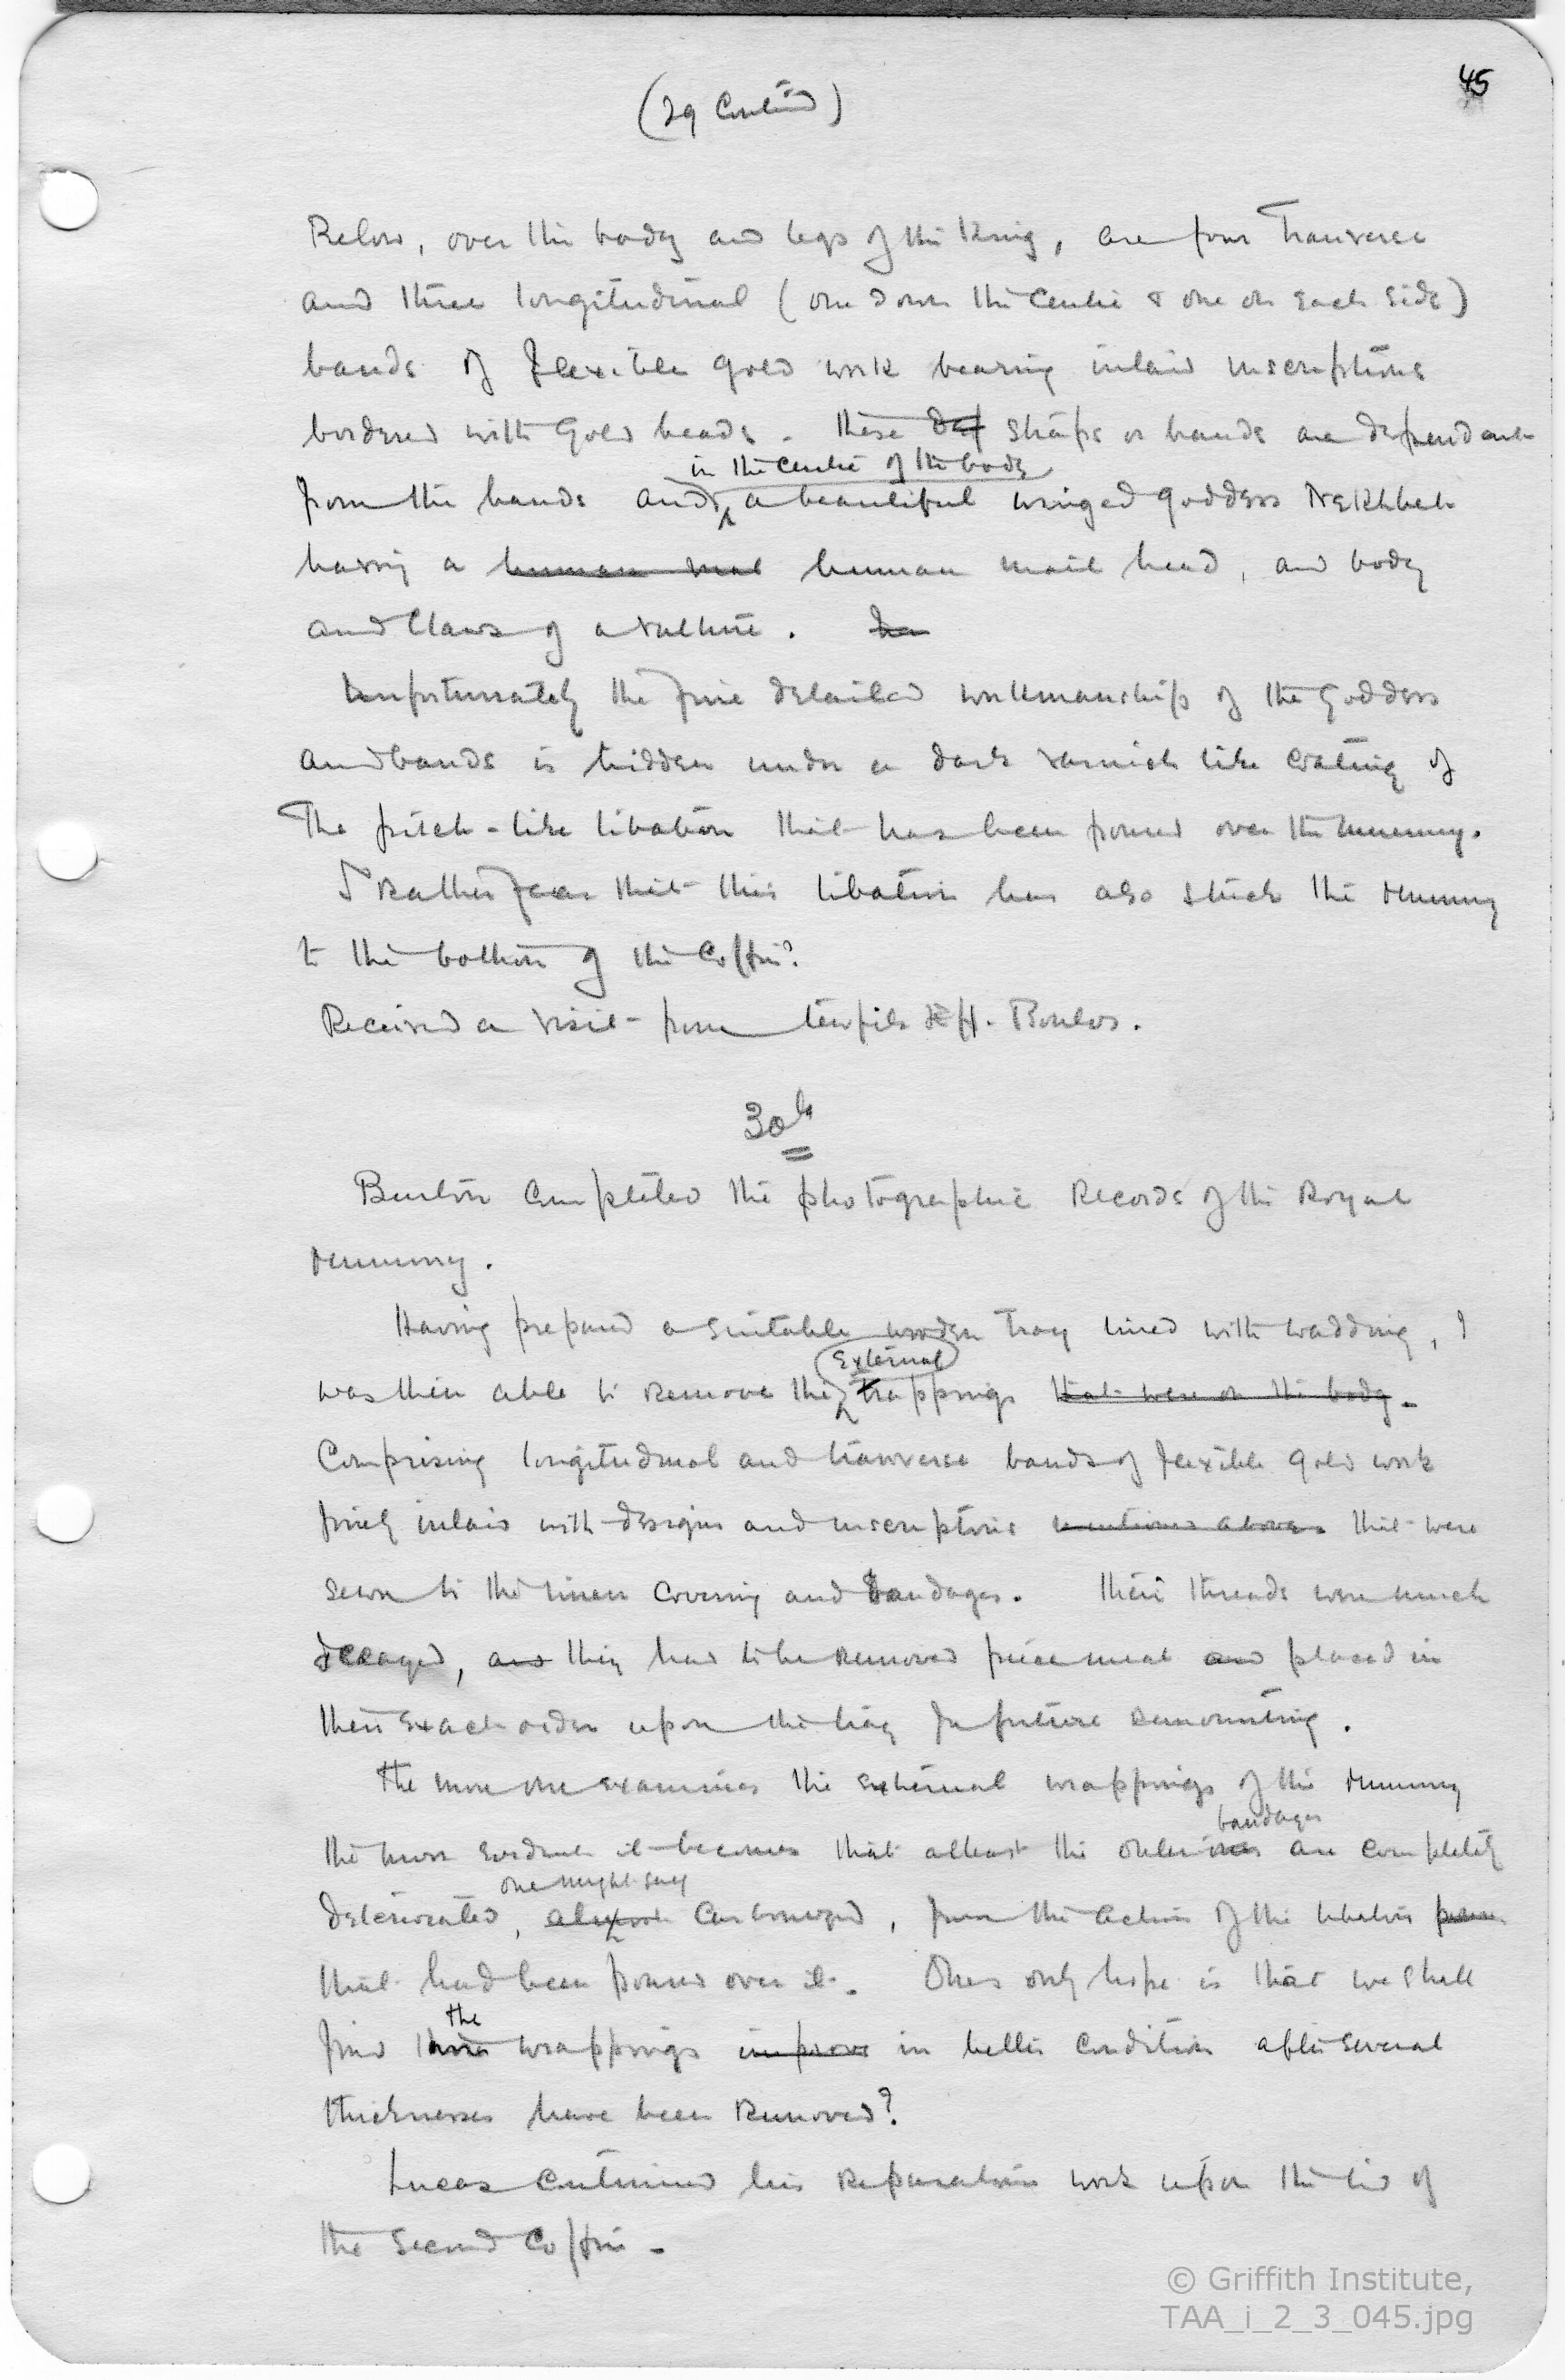 45
(29 Contin'd)
Below, over the body and legs of the King, are four Tranverse
and three longitudinal (one down the centre & one on each side)
bands of flexible gold work bearing inlaid inscriptions
bordered with gold beads. These straps or bands are dependant
in the centre of the body
from the hands and, a beautiful winged goddess Nekhbet
having a human mal human mail head, and body
and claws of a vulture.
Unfortunately the fine detailed workmanship of the Goddess
and bands is hidden under a dark varnish like coating of
The pitch-like libation that has been poured over the mummy.
I Rather fear that this libation has also stuck the mummy
to the bottom of the coffin?
Received a visit from Tewfik Eff. Boulos.
30th
Burton completed the photographic Records of the Royal
mummy.
Having prepared a suitable wooden Tray lined with wadding, I
External
was then able to remove the trappings that were on the body.
Comprising longitudinal and tranverse bands of flexible gold work
finely inlaid with designs and inscriptions mentioned above that were
sewn to the linen covering and bandages. Their threads were much
decayed, and they had to be removed piecemeal and placed in
their exact order upon the tray for future remounting.
The more one examines the external wrappings of the mummy
bandages
the more evident it becomes that atleast the outer are completely
one might say
deteriorated, almost carbonized, from the action of the libation
that had been poured over it. Ones only hope is that we shall
the
find wrappings improve in better condition after several
thicknesses have been removed?
Lucas continued his reparation work upon the lid of
the Second Coffin.
© Griffith Institute,
TAA_i_2_3_045.jpg